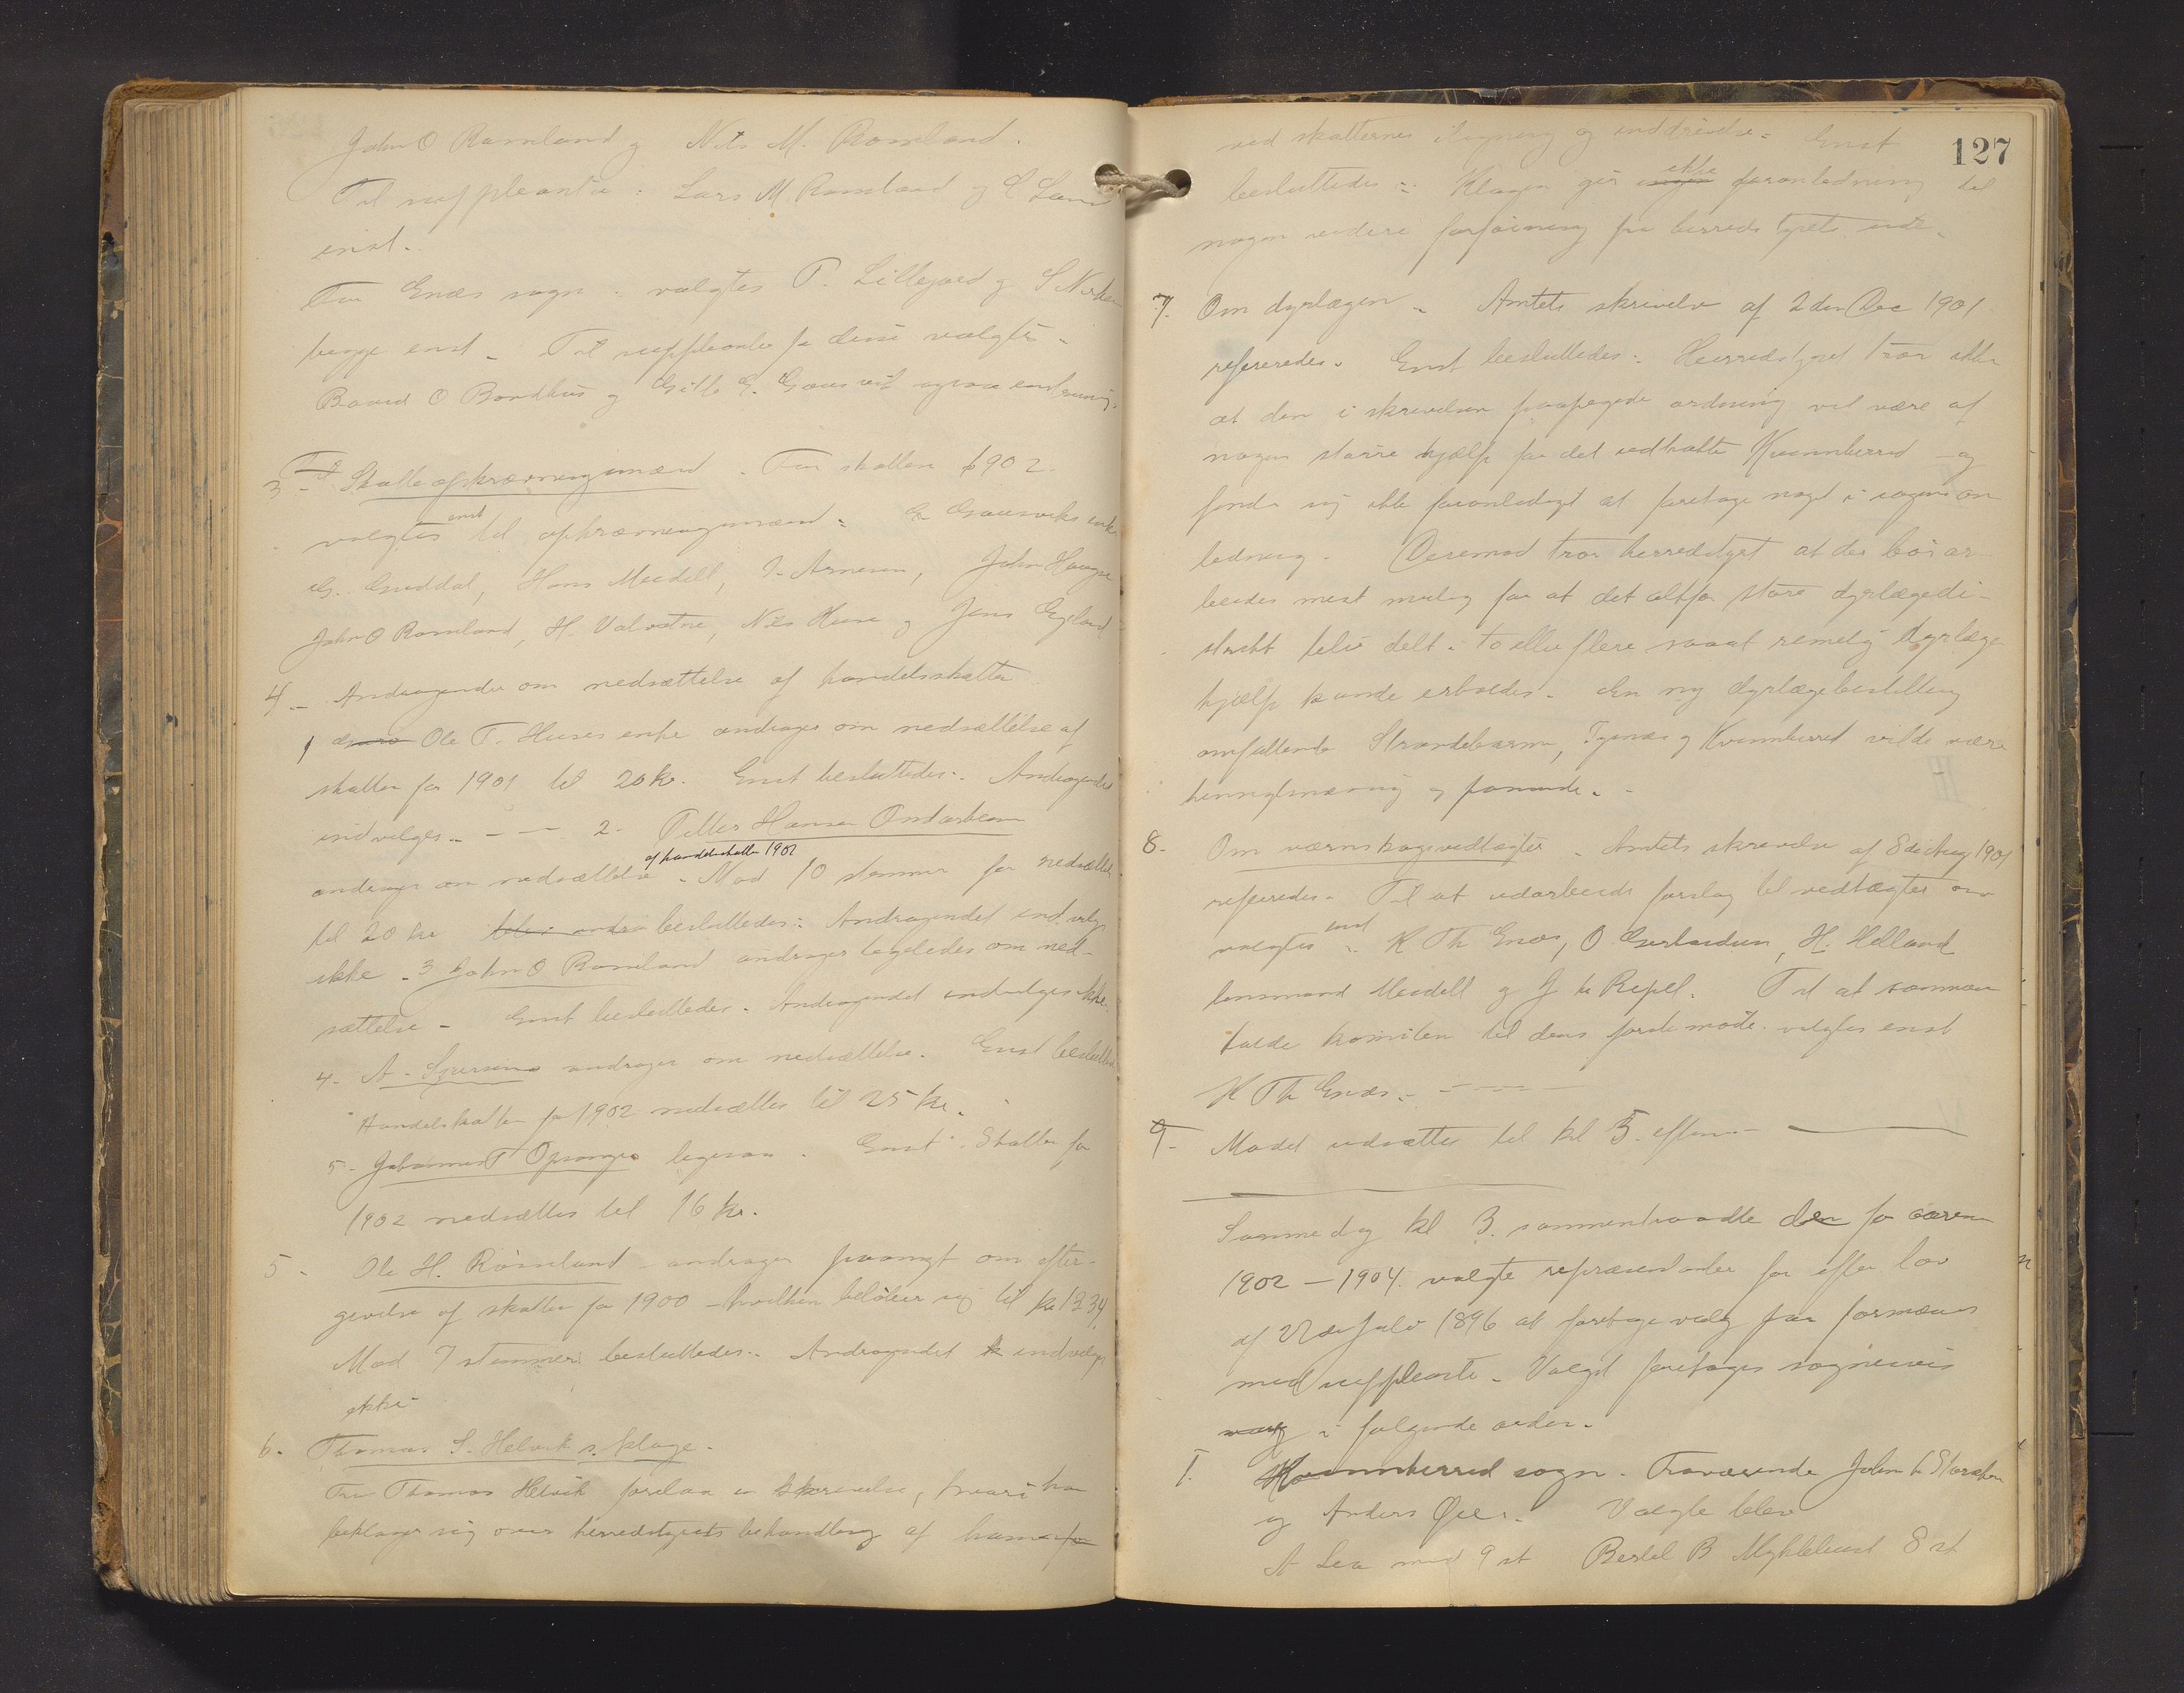 John O Ramsland og Nils M. Ramsland.
Til suppleanter: Lars M Ramsland og
enst.
For Enæs sogn: valgtes T. Lillegard og S
begge enst. Til suppleanter for disse valgtes
Baard O Bondhus og Gitle G. Gausvik ogsaa
3 Skatteopkrævningsmænd. For skatten 1902
valgtes enst til opkrævningsmænd: Gausviks enke
G. Guddal, Hans Meidell, Arnesen, John Hauge
John O Ramsland, H. Valvatne, Nils Huse og Jens
4 Andragender om nedsættelse af handelsskatter
1 Ole T. Huses enke andrager om nedsættelse af
skatten for 1901 til 20 kr. Enst besluttedes: Andragendet
indvilges. — — 2. Hansen
andrager om nedsættelse af handelsskatten 1902. Mod 10 stemmer for nedsættelse
til 20 kr besluttedes: Andragendet indvilges
ikke. 3 John O Ramsland andrager ligeledes om ned-
sættelse. Enst besluttedes. Andragendet indvilges ikke.
4. A. andrager om nedsættelse. Enst besluttedes
Handelskatten for 1902 nedsættes til 25 kr.
5. Johannes T Opsanger ligesaa. Enst: Skatten for
1902 nedsættes til 16 kr.
5. Ole H. Ramsland andrager paanyt om efter-
givelse af skatten for 1900 — hvilken beløber sig til kr 13 34
Mod 7 stemmer besluttedes: Andragendet indvilges
ikke
6. Thomas S. Helviks klage.
Fra Thomas Helvik forelaa en skrivelse, hvori han
beklager sig over herredstyrets behandling af ham
127
ved skatternes ligning og inddrivelse: Enst
besluttedes: Klagen gir ikke foranledning til
nogen videre forføining fra herredstyrets side.
7. Om dyrlægen. Amtets skrivelse af 2den Dec 1901
refereredes. Enst besluttedes: Herredstyret tror ikke
at den i skrivelsen paapegede ordning vil være af
nogen større hjælp for det vidtrakte Kvinnherred og
finder sig ikke foranlediget at foretage noget i sagens an
ledning. Derimod tror herredstyret at der bør ar
beides mest mulig for at det altfor store dyrlægedi-
strikt blir delt i to eller flere saaat rimelig dyrlæge
hjælp kunde erholdes. En ny dyrlægebestilling
omfattende Strandebarm, Tysnes og Kvinnherred vilde være
hensigtsmæssig og passende.
8. Om værnskogsvedtægter. Amtets skrivelse af 8de Aug 1901
refereredes. Til at udarbeide forslag til vedtægter
valgtes enst: K Th Enæs, O, H. Helland
lensmand Meidell og
kalde komiteen til dens første møde valgtes enst
K Th Enæs. — — — —
9. Mødet udsættes til kl 5 efterm. —
Samme dag kl 3. sammentraadte de for aarene
1902 — 1904 valgte repræsentanter for efter lov
af 27de Juli 1896 at foretage valg paa formænd
med suppleanter. Valget foretages sognevis
i følgende orden.
I. Kvinnherred sogn. Fraværende John
og Anders Øie. Valgte blev
A Lea med 9 st Bertel B Myklebust 8 st